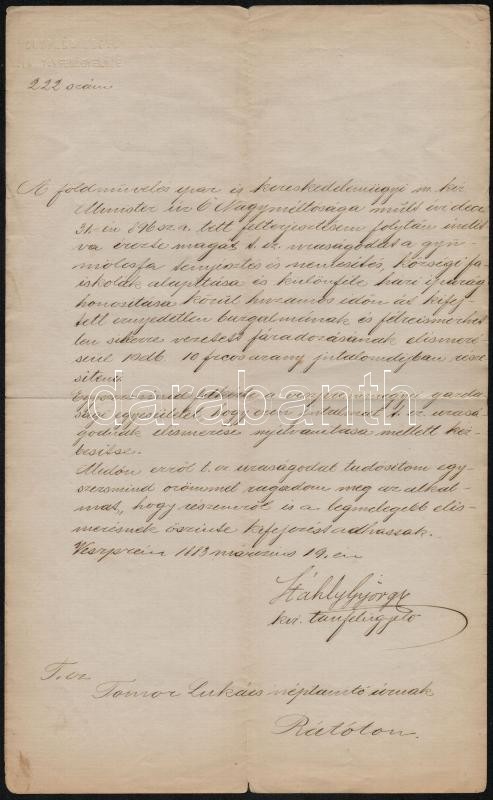 222 szám
A földművelés ipar és kereskedelemügyi m. kir
Minister úr Ő Nagyméltósága múlt évi dece
31-én 896 sz. a. tett felterjesztésem folytán indít
va érezte magát t. cz. uraságodat a gyü
mölcsfa tenyésztés és nemesítés, községi fa
iskolák alapítása és különféle házi iparág
honosítása körül huzamos időn át kifej
tett ernyedetlen buzgalmának és félreismerhet
len sikerre vezetett fáradozásának elismeré
séül 10 frcos arany jutalomdíjban része
síteni.
Egyszersmind felkérte a veszprémmegyei gazda
sági egyesületet, hogy ezen jutalmat t. cz. urasá
godnak elismerése nyilvánítása mellett kéz
besítse.
Midőn erről t. cz. uraságodat tudósítom egy
szersmind örömmel ragadom meg az alkal
mat, hogy részemről is a legmelegebb elis
merésnek őszinte kifejezést adhassak.
Veszprém 1883 március 19.én
Stáhly György
kir. tanfelügyelő
T. cz
Tomor Lukács néptanító úrnak
Rátóton.
darabanth